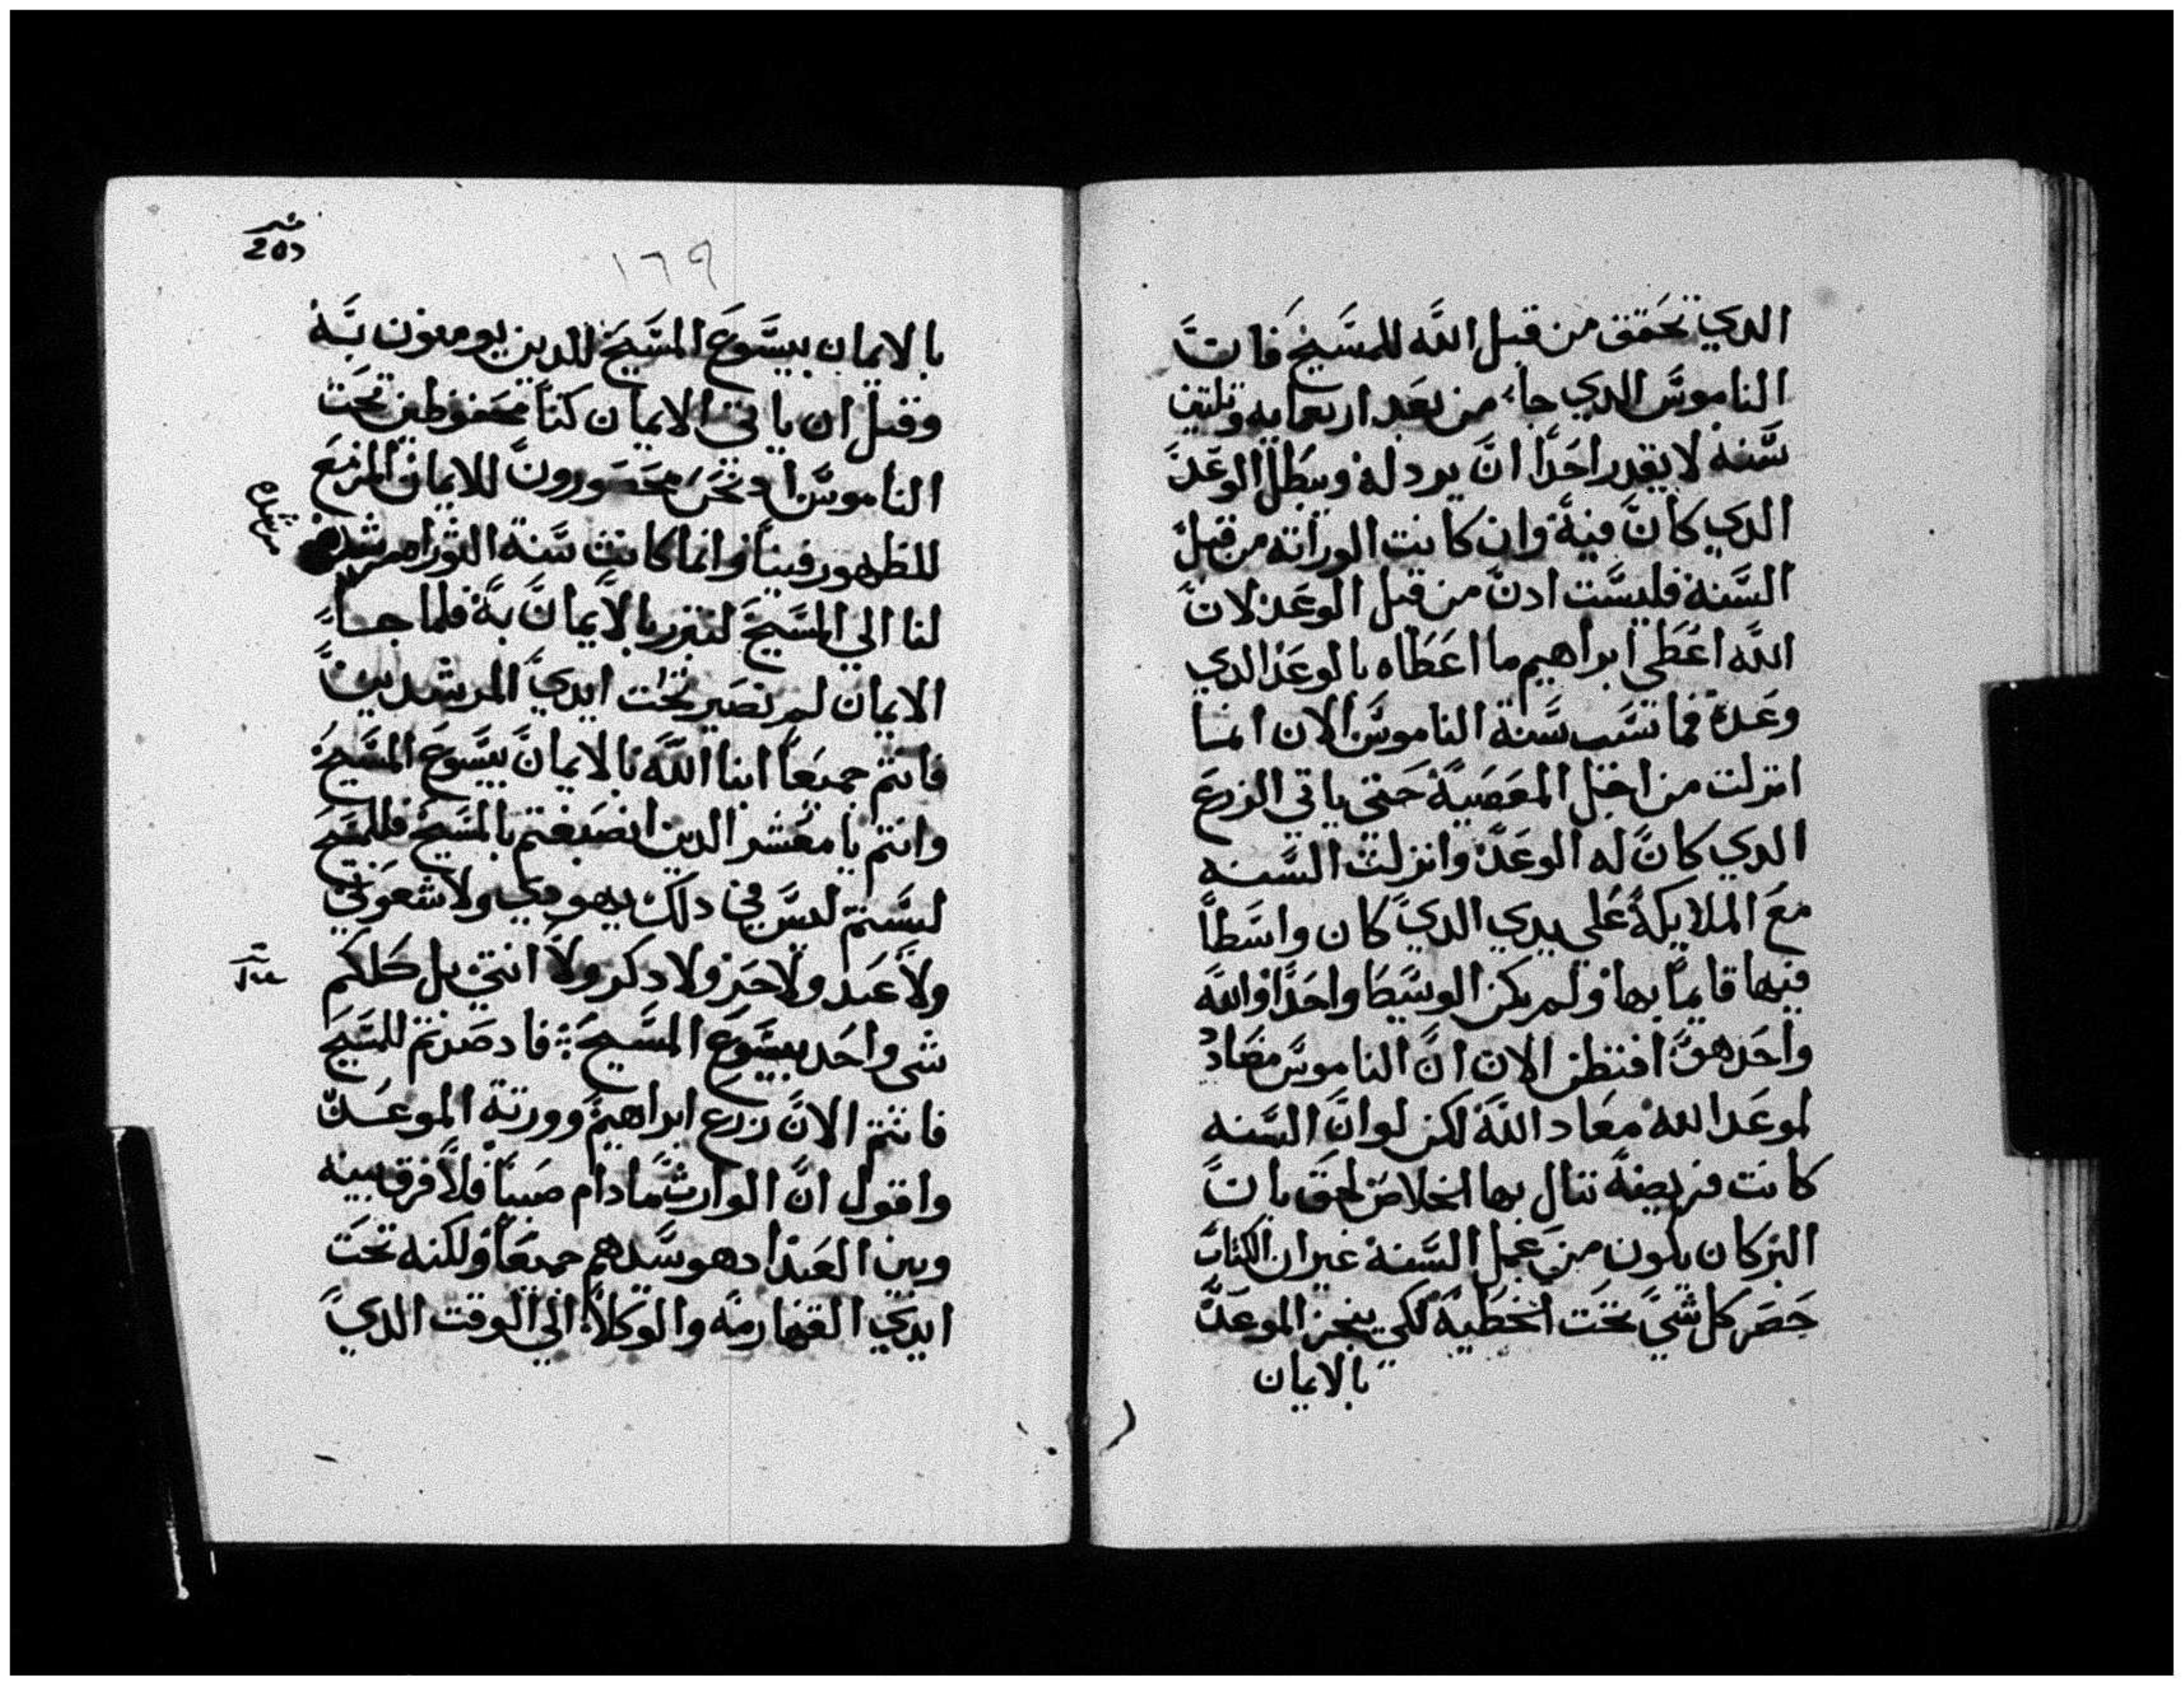 الدي تحقق من قبل الله للمسيح فان
الناموس الدي جاء من بعد اربعمايه وتلتين
سنة لا يقدر احدا ان يردله ويبطل الوعد
الدي كان فيه وان كانت الوراته من قبل
السنة فليست ادن من قبل الوعد لان
الله اعطي ابراهيم ما اعطاه بالوعد الدي
وعده فما تسبب سنة الناموس الان انما
انزلت من اجل المعصية حتي ياتي الزرع
الدي كان له الوعد وانزلت السنه
مع الملايكة علي يدي الدي كان واسطا
فيها قايما بها ولم يكن الوسيطا واحدا والله
واحد هو افنظن الان ان الناموس مضاد
لموعد الله معاد الله لكن لو ان السنه
كانت فريضة تنال بها الخلاص لحق بان
البر كان يكون من عمل السنة غير ان الكتاب
حصر كل شي تحت الخطية لكي ينجز الموعد
بالايمان
١٦٩
بالايمان بيسوع المسيح للدين يومنون به
وقبل ان ياتي الايمان كنا محفوظين تحت
الناموس اد نحن محصورون للايمان المزمع
للظهور فينا وانما كانت سنة التوراه مرشده
لنا الي المسيح لنتبرر بالايمان به فلما جاء
الايمان لم نصير تحت ايدي المرشدين
فانتم جميعا ابنا الله بالايمان بيسوع المسيح
وانتم يا معشر الدين انصبغتم بالمسيح فللمسيح
لبستم ليس في دلك يهودي ولا شعوبي
ولا عبد ولا حر ولا دكر ولا انتي بل كلكم
شي واحد بيسوع المسيح فاد صرتم للمسيح
فانتم الان زرع ابراهيم وورتة الموعد
واقول ان الوارث ما دام صبيا فلا فرق بينه
وبين العبد اد هو سيدهم جميعا ولكنه تحت
ايدي القهارمه والوكلاء الي الوقت الدي